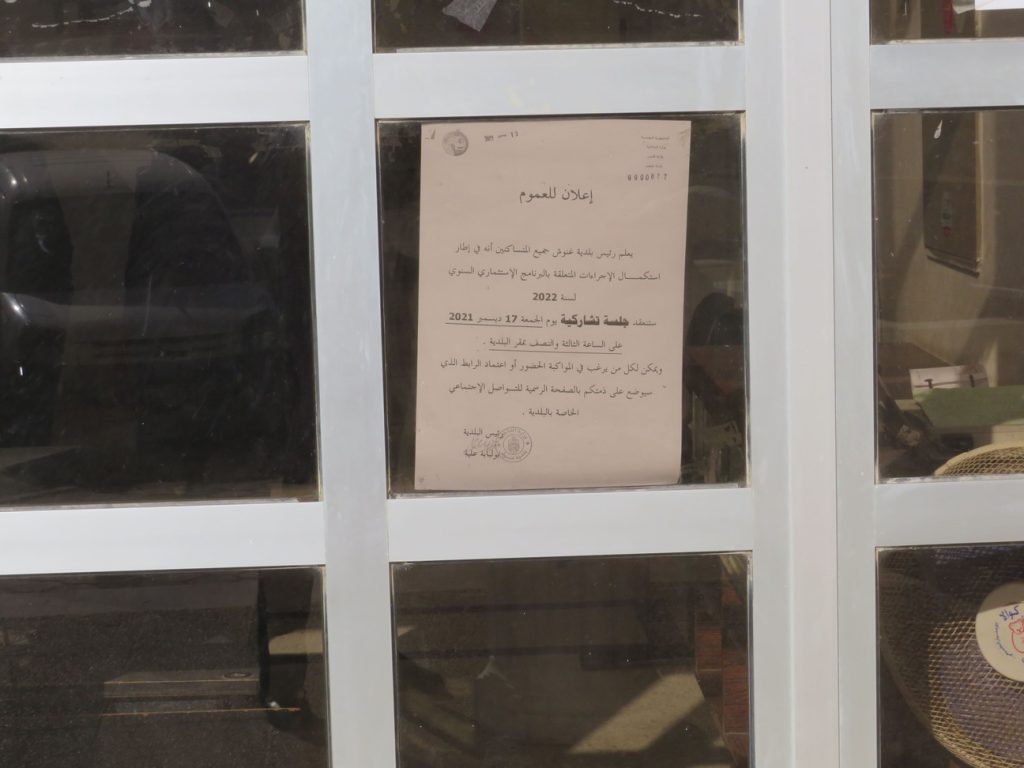 الجمهورية التونسية
0000617
إعلان للعموم
يعلم رئيس بلدية غنوش جميع المتساكنين أنه في إطار
استكمــــال الإجراءات المتعلقة بالبرنامج الإستثماري السنوي
لسنة 2022
ستنعقد جلسة تشاركية يوم الجمعة 17 ديسمبر 2021
على الساعة الثالثة والنصف بمقر البلدية .
ويمكن لكل من يرغب في المواكبة الحضور أو اعتماد الرابط الذي
سيوضع على ذمتكم بالصفحة الرسمية للتــواصل الإجتماعي
الخاصة بالبلدية .
رئيس البلدية